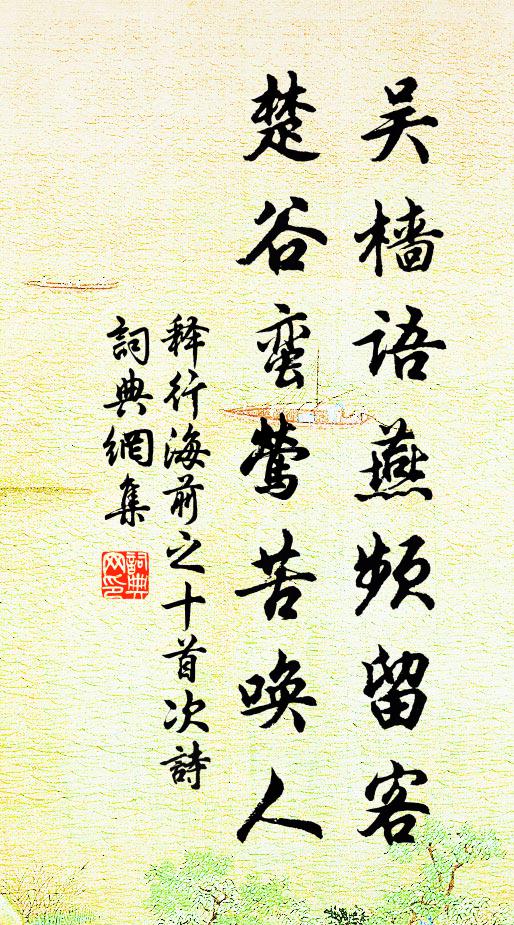 吴檣語燕頻留客
楚谷蛮鶯苦唤人
释行海前之十首次詩
詞典網集
詞典网印